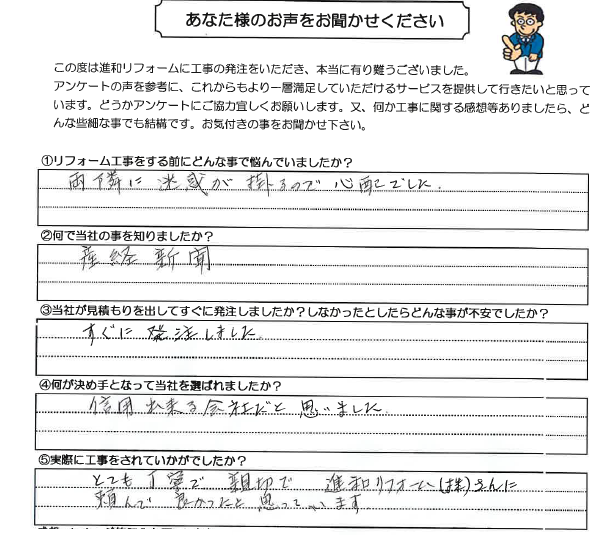 あなた様のお声をお聞かせください
この度は進和リフォームに工事の発注をいただき、本当に有り難うございました。
アンケートの声を参考に、これからもより一層満足していただけるサービスを提供して行きたいと思って
います。どうかアンケートにご協力宜しくお願いします。又、何か工事に関する感想等ありましたら、ど
んな些細な事でも結構です。お気付きの事をお聞かせ下さい。
①リフォーム工事をする前にどんな事で悩んでいましたか？
両隣に迷惑が掛るので心配でした.
②何で当社の事を知りましたか？
産経新聞
③当社が見積もりを出してすぐに発注しましたか？しなかったとしたらどんな事が不安でしたか？
すぐに発注しました.
④何が決め手となって当社を選ばれましたか？
信用出来る会社だと思いました.
⑤実際に工事をされていかがでしたか？
とても丁寧で親切で 進和リフォーム(株)さんに
頼んで良かったと思っています